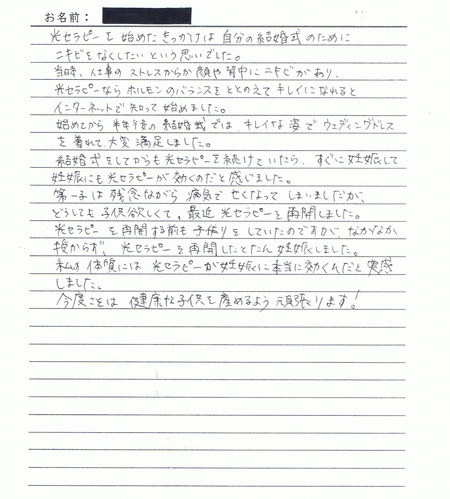 お名前：
光セラピーを始めたきっかけは 自分の結婚式のために
ニキビをなくしたいという思いでした。
当時、仕事のストレスからか顔や背中にニキビがあり、
光セラピーなら ホルモンのバランスをととのえて キレイになれると
インターネットで 知って 始めました。
始めてから 半年後の 結婚式では、キレイな姿で ウェディングドレス
を着れて 大変 満足しました。
結婚式をしてからも 光セラピーを続けていたら、すぐに妊娠して
妊娠にも光セラピーが効くのだと感じました。
第一子は 残念ながら 病気で 亡くなって しまいましたが、
どうしても 子供欲しくて、最近 光セラピーを再開しました。
光セラピーを再開する前も 子作りをしていたのですが、なかなか
授からず、光セラピーを再開したとたん 妊娠しました。
私の体質には 光セラピーが妊娠に本当に効くんだと 実感
しました。
今度こそは 健康な子供を産めるよう 頑張ります！